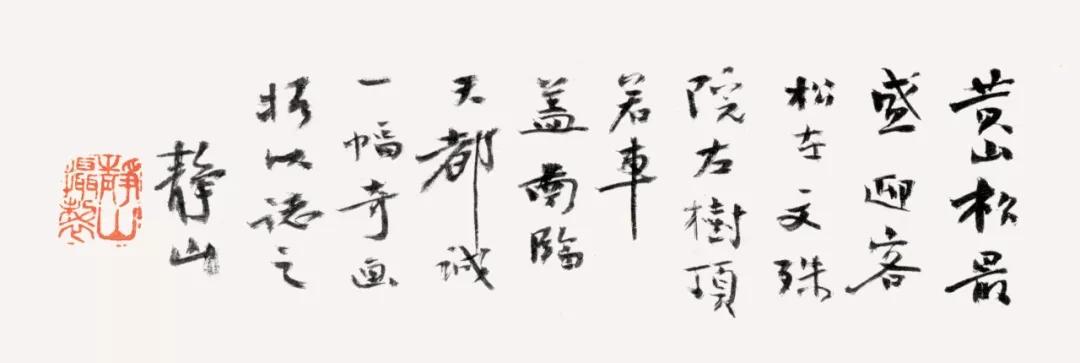 黄山松最
盛迎客
松在文殊
院右樹頂
若車
盖南臨
天都誠
一幅奇画
攝以誌之
靜山
靜山
攝製